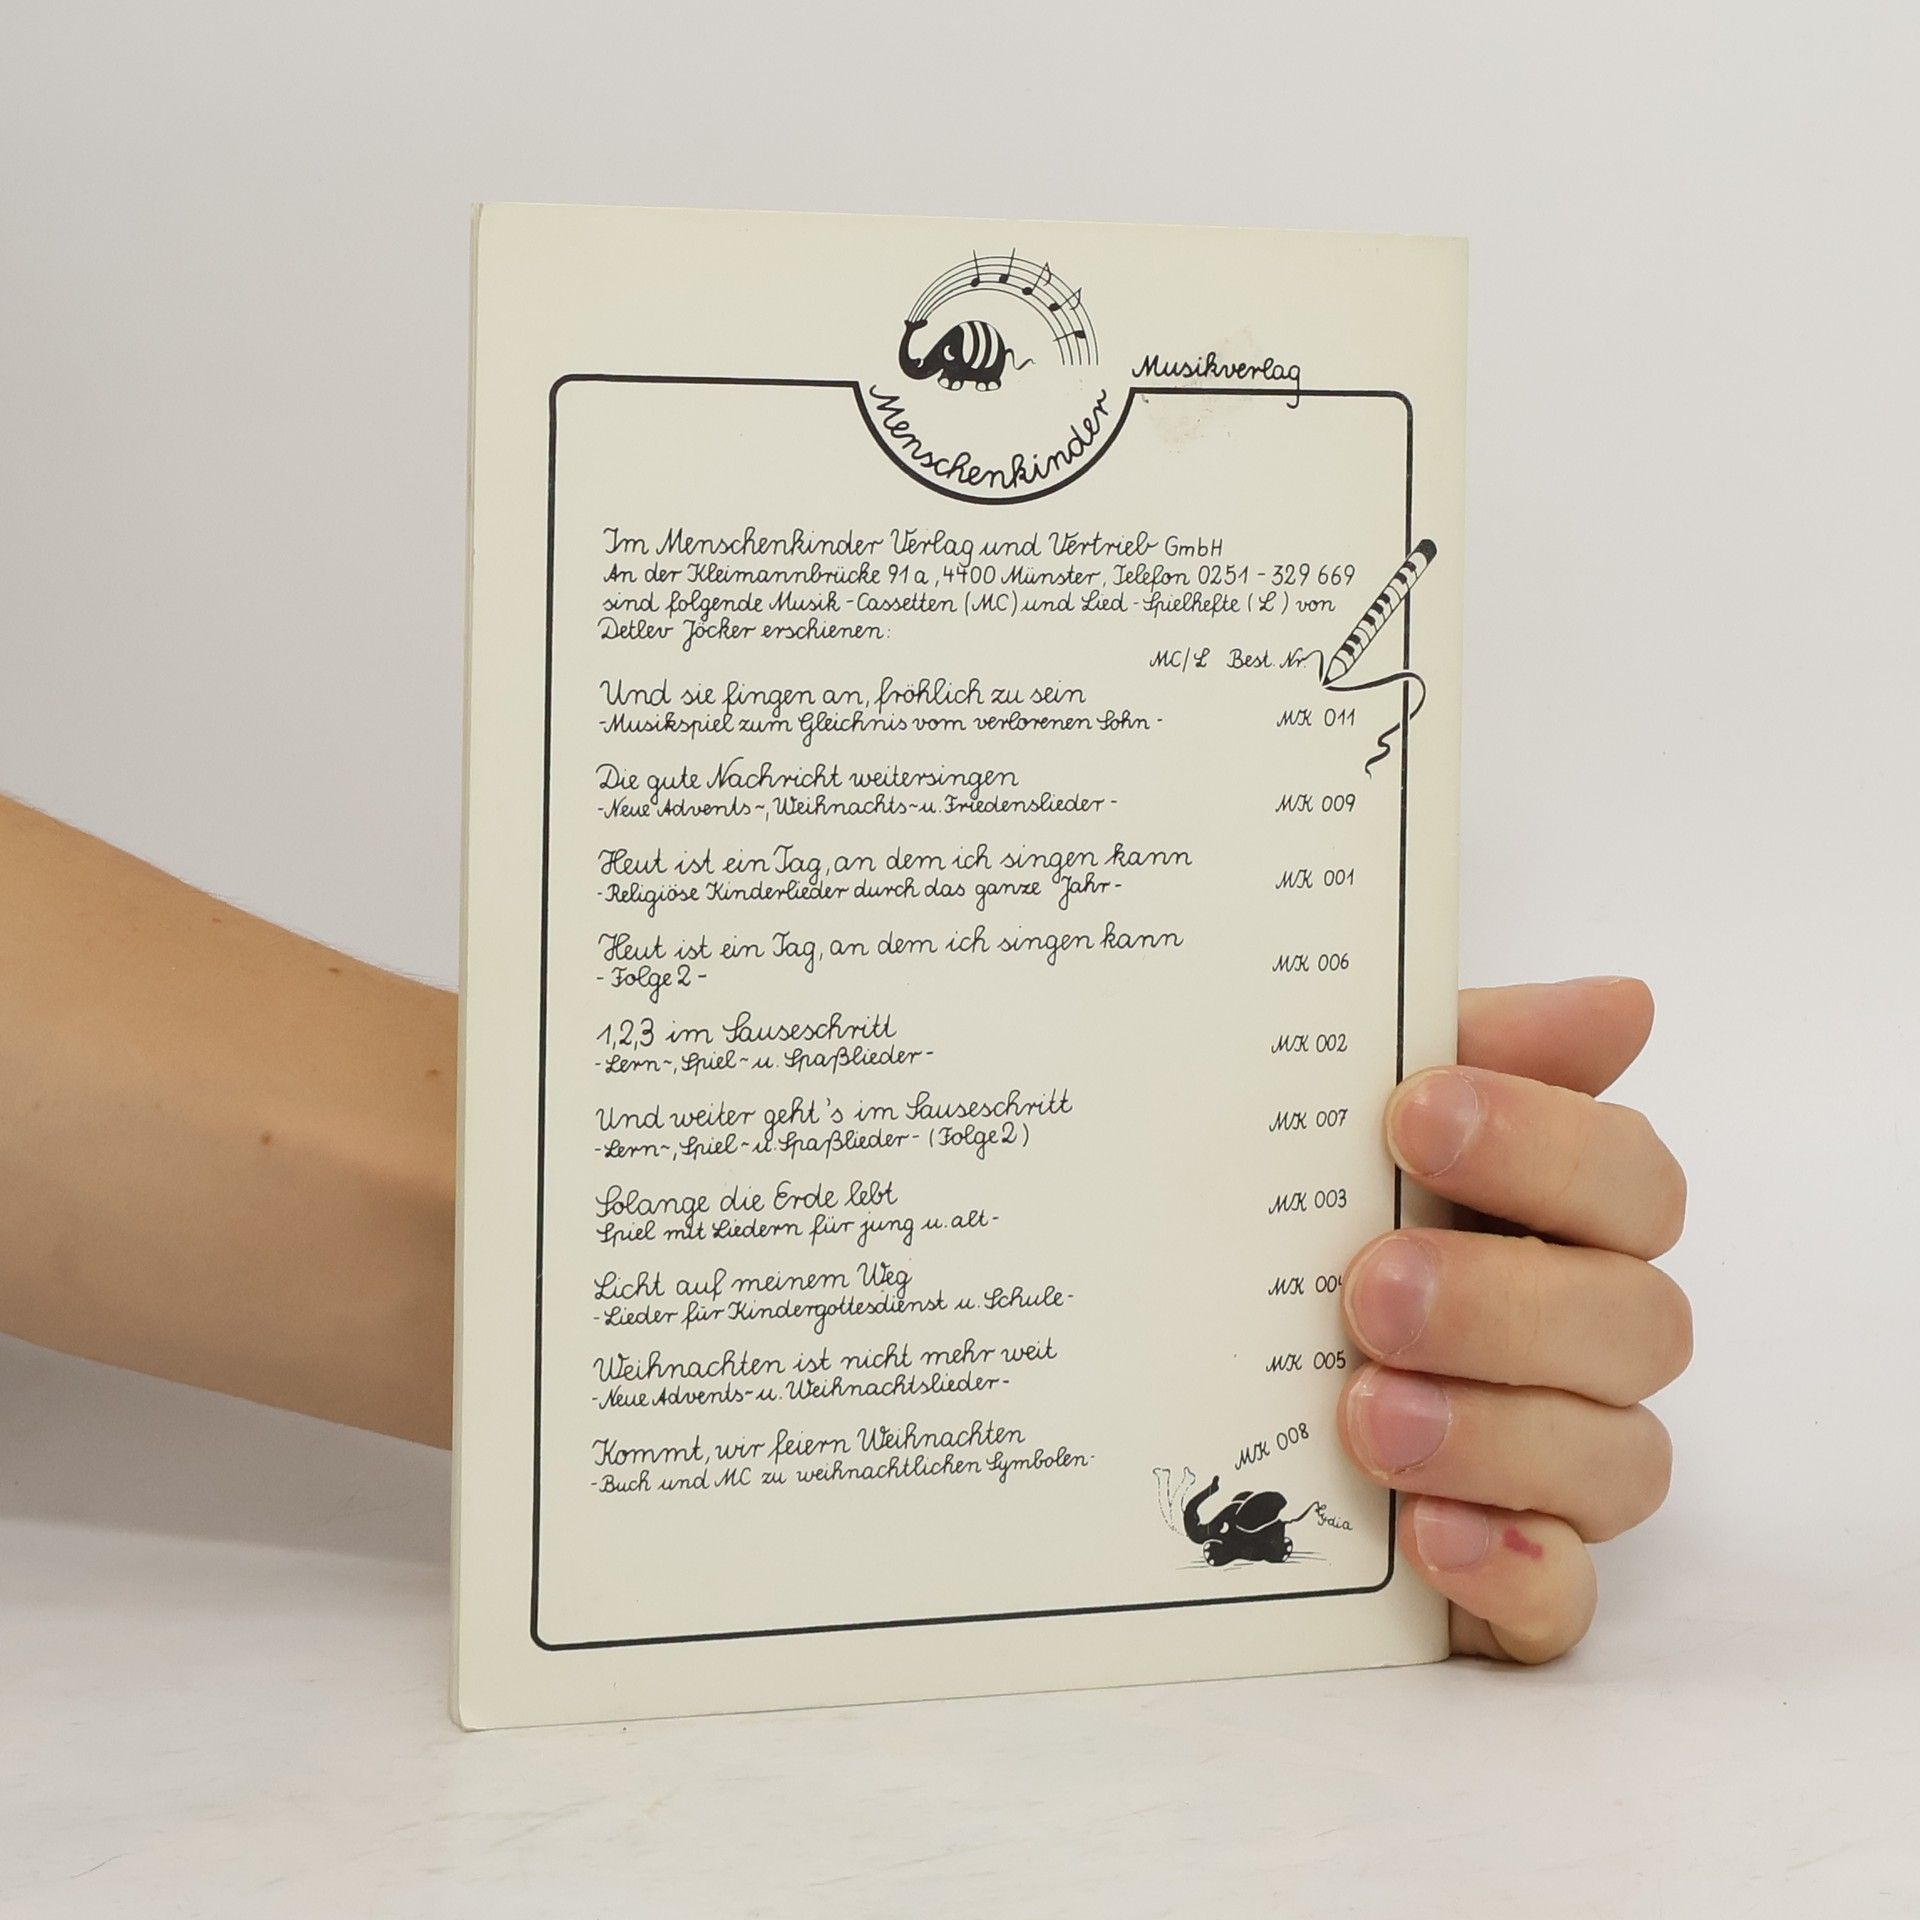 Musikverlag
Menschenkinder
Im Menschenkinder Verlag und Vertrieb GmbH
An der Kleimannbrücke 91a, 4400 Münster, Telefon 0251-329 669
sind folgende Musik-Cassetten (MC) und Lied-Spielhefte (L) von
Detlev Jöcker erschienen:
MC/L Best. Nr.
Und sie fingen an, fröhlich zu sein
-Musikspiel zum Gleichnis vom verlorenen Sohn- MK 011
Die gute Nachricht weitersingen
-Neue Advents-, Weihnachts- u. Friedenslieder- MK 009
Heut ist ein Tag, an dem ich singen kann
-Religiöse Kinderlieder durch das ganze Jahr- MK 001
Heut ist ein Tag, an dem ich singen kann
-Folge 2- MK 006
1,2,3 im Sauseschritt
-Lern-, Spiel- u. Spaßlieder- MK 002
Und weiter geht's im Sauseschritt
-Lern-, Spiel- u. Spaßlieder- (Folge 2) MK 007
Solange die Erde lebt
Spiel mit Liedern für jung u. alt- MK 003
Licht auf meinem Weg
-Lieder für Kindergottesdienst u. Schule- MK
Weihnachten ist nicht mehr weit
-Neue Advents- u. Weihnachtslieder- MK 005
Kommt, wir feiern Weihnachten
-Buch und MC zu weihnachtlichen Symbolen- MK 008